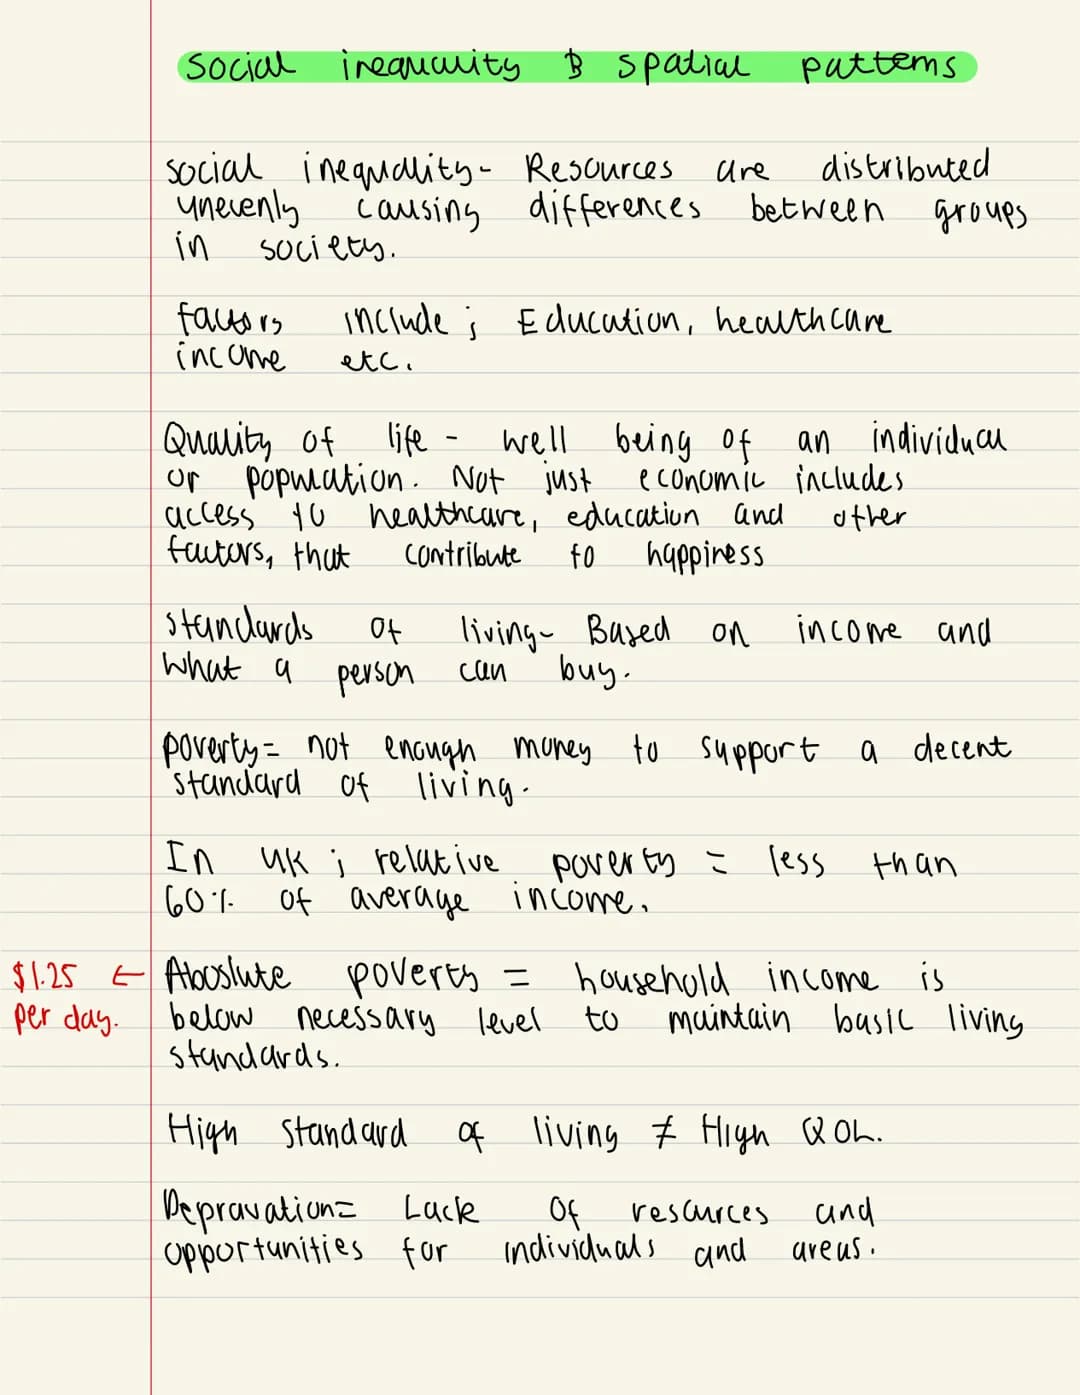 Social inequality & spatial patterns
social inequality- Resources are distributed
unevenly causing differences between groups
in society.
factors include ; Education, healthcare
income etc.
Quality of life - well being of an individual
or population. Not just economic includes
access to healthcare, education and other
factors, that contribute to happiness
standards of living- Based on income and
what a person can buy.
poverty= not enough money to support a decent
standard of living.
In UK ; relative poverty = less than
60% of average income.
$1.25 ← Aboslute poverty = household income is
per day. below necessary level to maintain basic living
standards.
High standard of living ≠ High QOL.
Depravation= Lack of resources and
opportunities for individuals and areas.